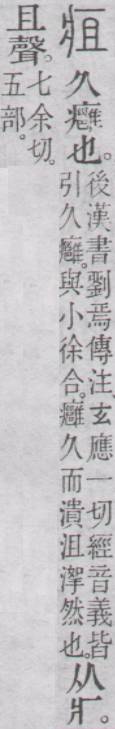 疽
久癰也。
後漢書劉焉傳注、玄應一切經音義皆
引久癰。與小徐合。癰久而潰沮然也。
从疒。
且聲。
七余切。
五部。